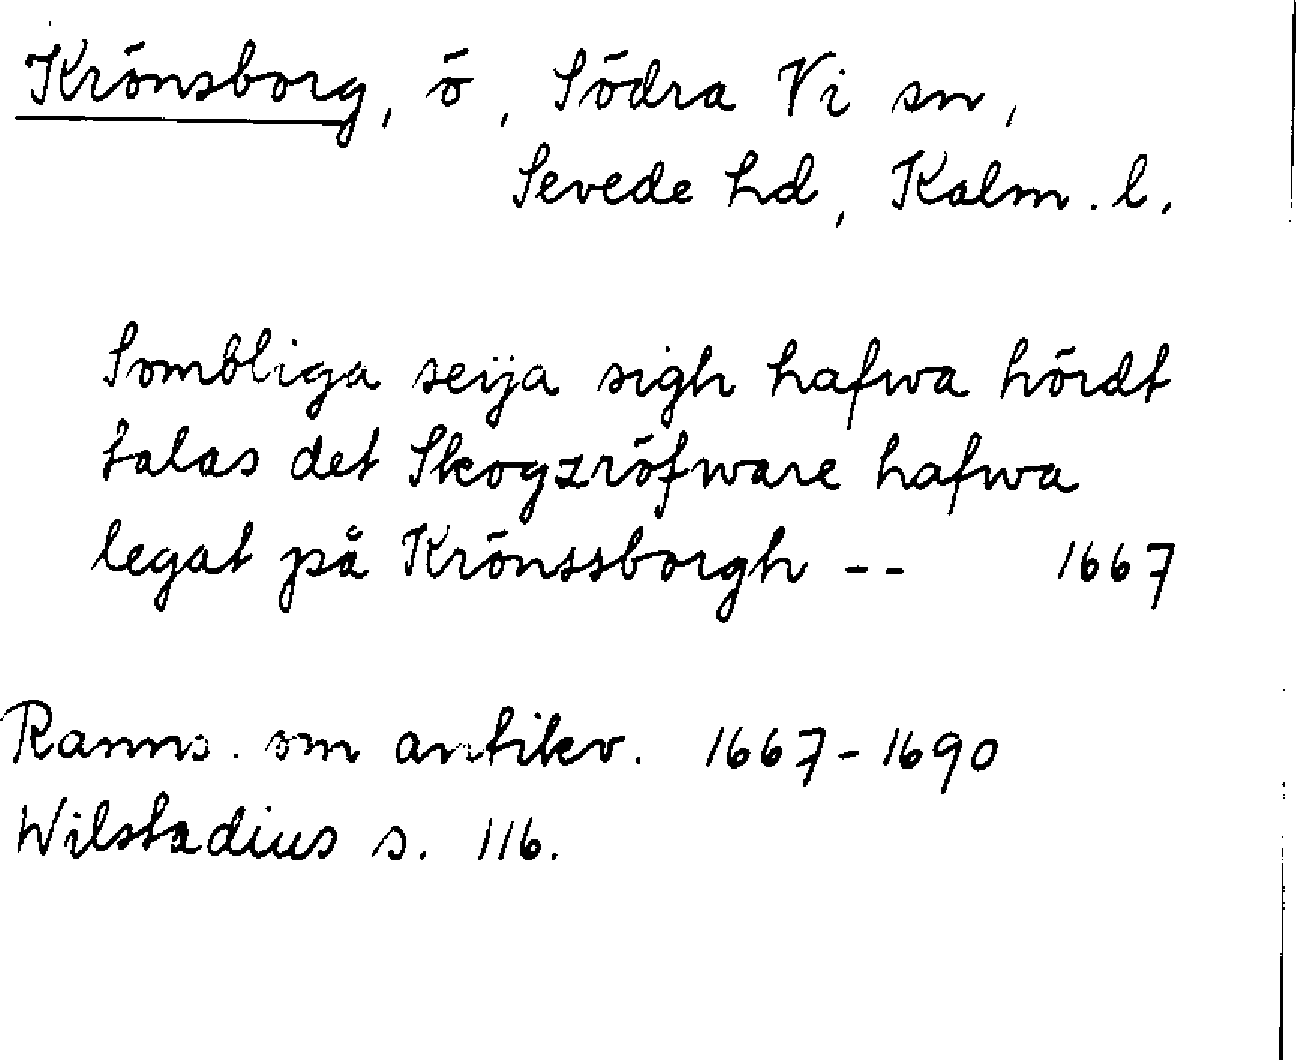 Krönsborg, ö, Södra Vi sn,
Sevede hd, Kalm. l.
Sombliga seija sigh hafwa hördt
talas det Skogzröfware hafwa
legat på Krönssborgh -- 1667
Ranns. om antikv. 1667-1690
Wilstadius s. 116.